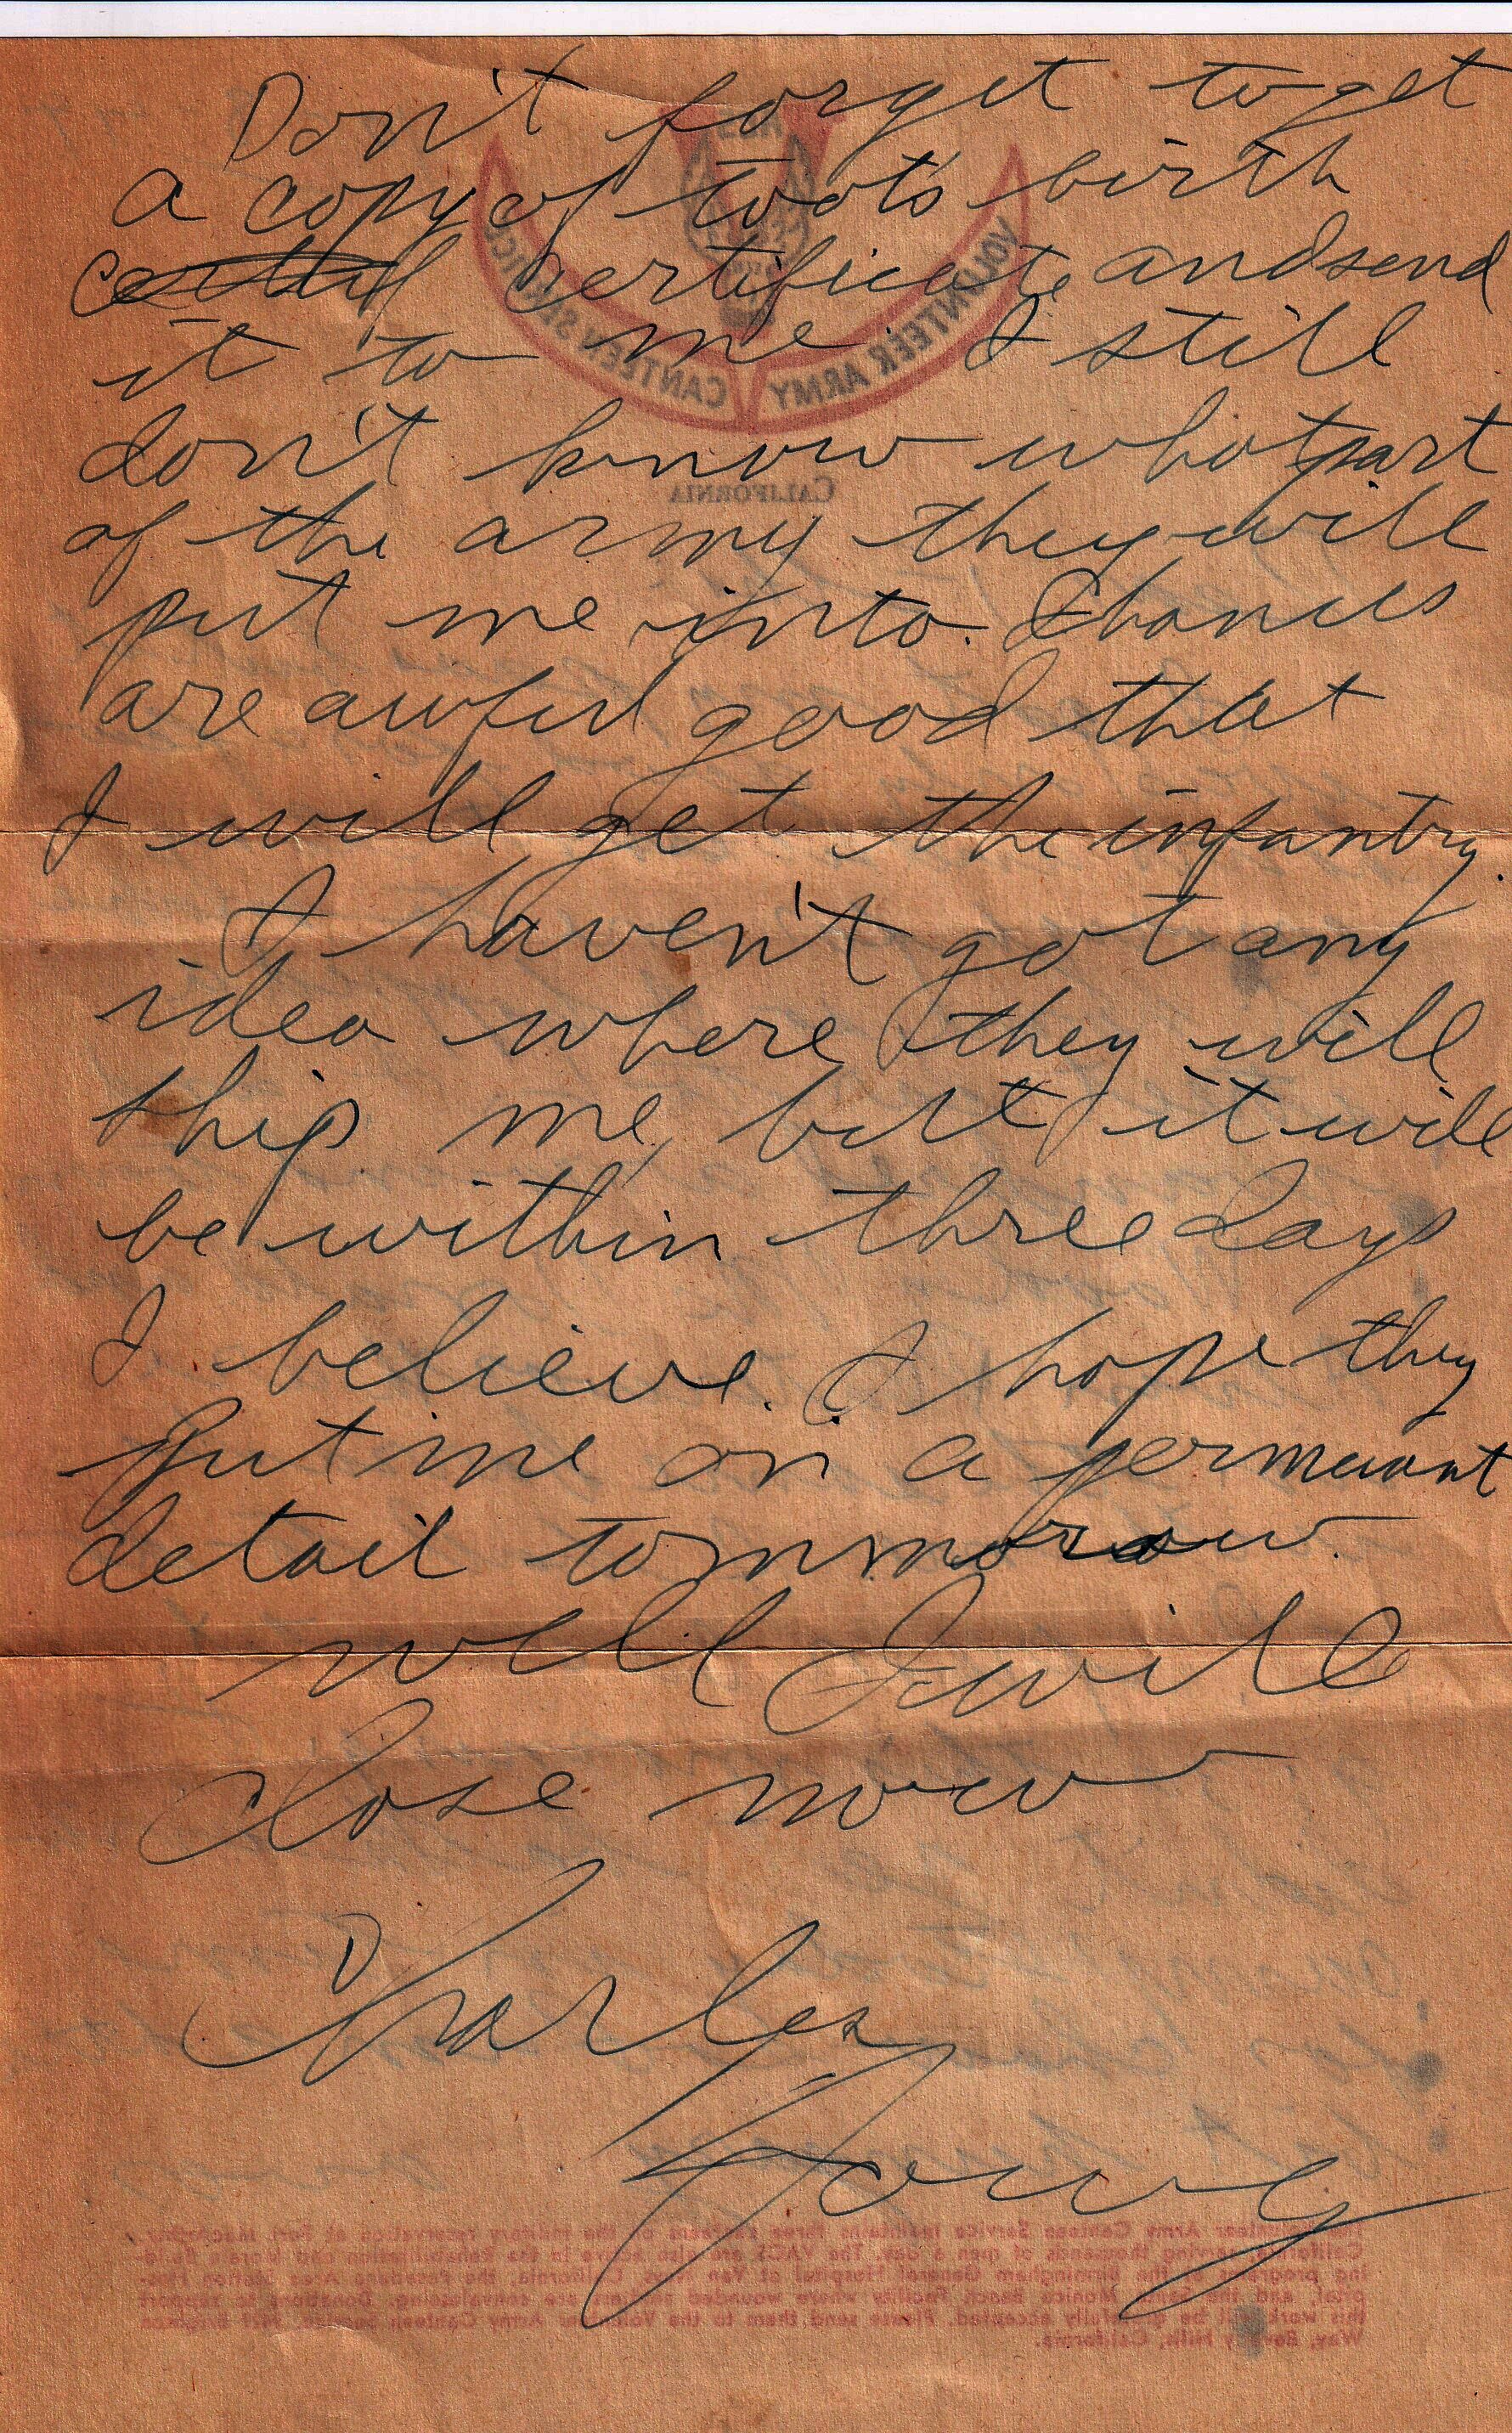 Don't forget to get
a copy of toots birth
certif certificate and send
it to me. I still
don't know what part
of the army they will
put me into. Chances
are awful good that
I will get the infantry.
I haven't got any
idea where they will
ship me, but it will
be within three days
I believe. I hope they
put me on a permanant
detail tommorow.
Well I will
close now
Charles
Young
VOLUNTEER ARMY CANTEEN SERVICE
CALIFORNIA
The Volunteer Army Canteen Service maintains three canteens on the military reservation at Fort MacArthur,
California, serving thousands of men a day. The VACS are also active in the Rehabilitation and Morale Build-
ing programs at the Birmingham General Hospital at Van Nuys, California, the Pasadena Area Station Hos-
pital, and the Santa Monica Beach Facility where wounded are convalescing. Donations to support
this work will be gratefully accepted. Please send them to the Volunteer Army Canteen Service,
Way, Beverly Hills, California.